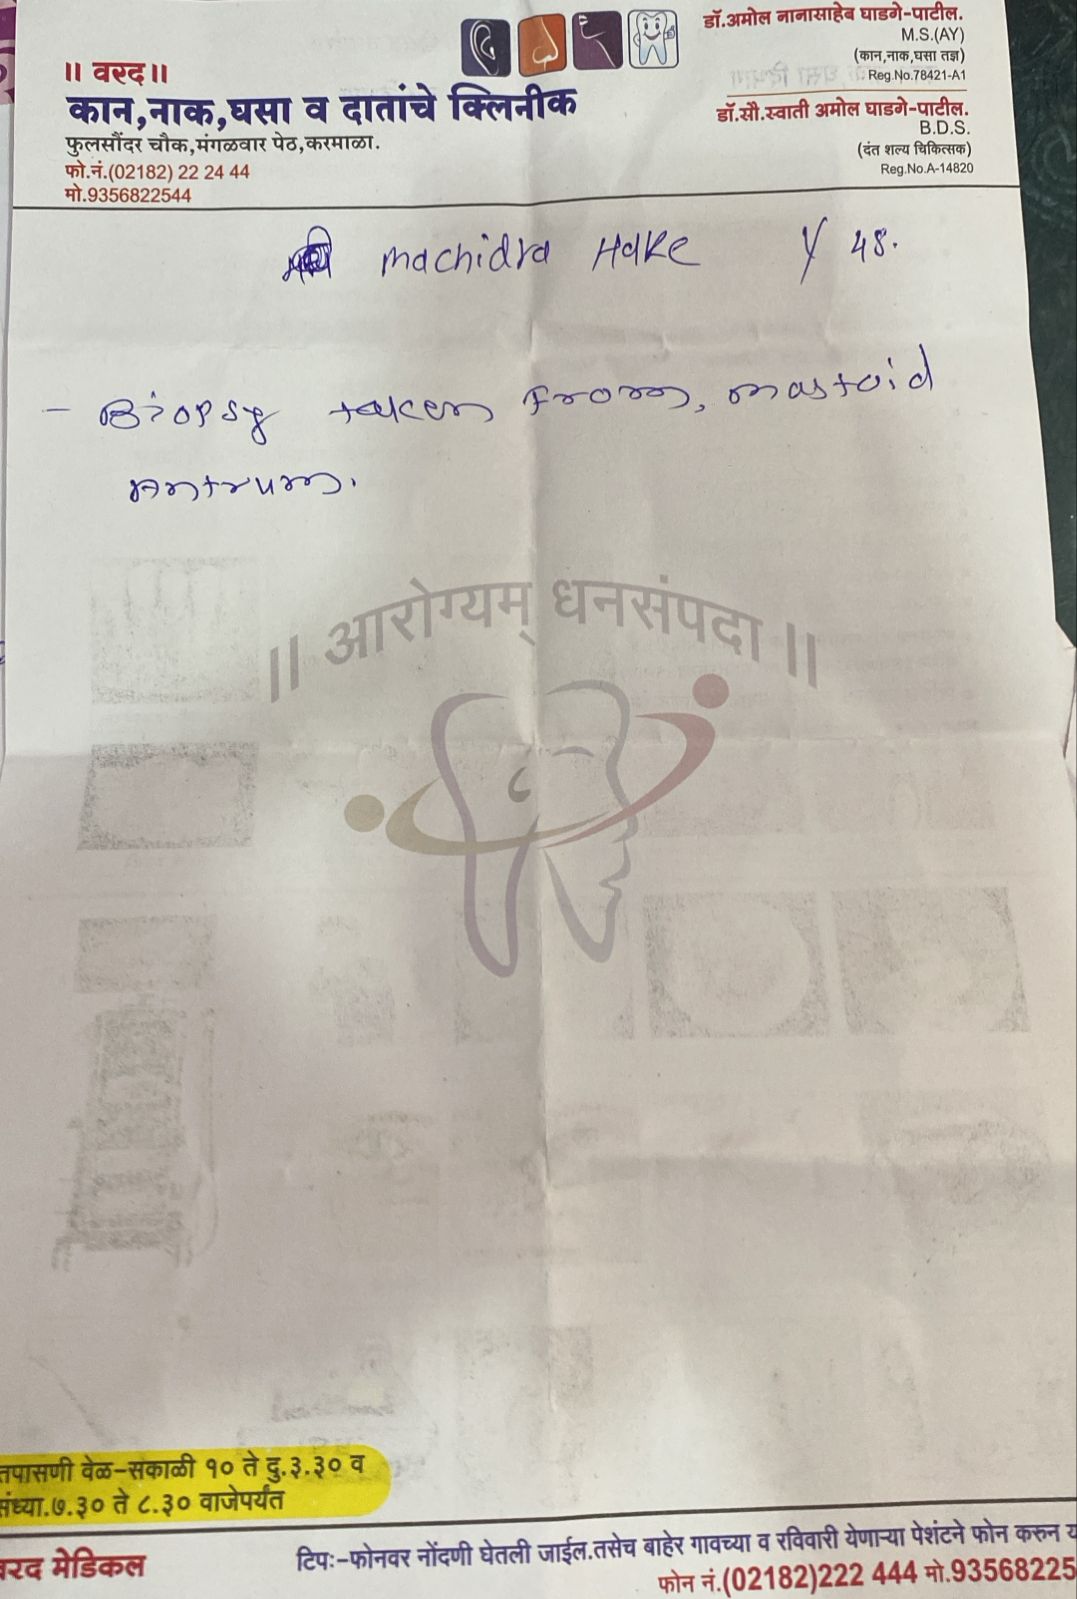 ॥ वरद॥
कान,नाक,घसा व दातांचे क्लिनीक
फुलसौंदर चौक,मंगळवार पेठ,करमाळा.
फो.नं.(02182) 22 24 44
मो.9356822544
डॉ.अमोल नानासाहेब घाडगे-पाटील.
M.S.(AY)
(कान,नाक,घसा तज्ञ)
Reg.No.78421-A1
डॉ.सौ.स्वाती अमोल घाडगे-पाटील.
B.D.S.
(दंत शल्य चिकित्सक)
Reg.No.A-14820
Machidra Hake Y 48.
- Biopsy taken from, mastoid
Antrum.
॥ आरोग्यम् धनसंपदा ॥
तपासणी वेळ-सकाळी १० ते दु.३.३० व
संध्या.७.३० ते ८.३० वाजेपर्यंत
वरद मेडिकल
टिपः-फोनवर नोंदणी घेतली जाईल.तसेच बाहेर गावच्या व रविवारी येणाऱ्या पेशंटने फोन करुन य
फोन नं.(02182)222 444 मो.93568225